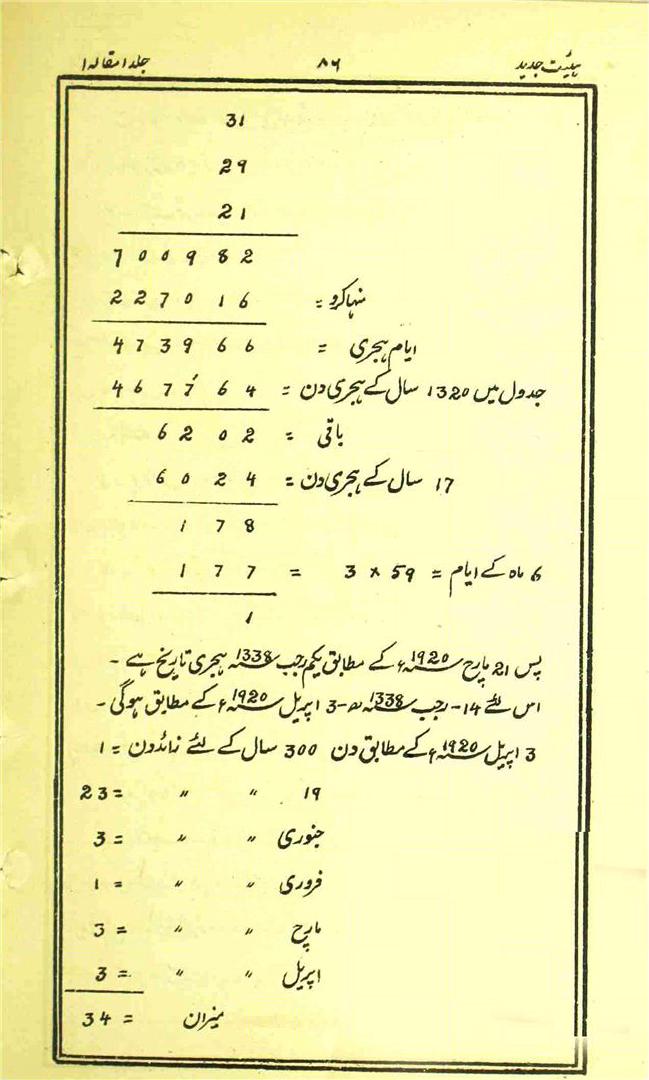 ہیئت جدید ۸۶ جلد ۱ مقالہ ۱
31
29
21
7 0 0 9 8 2
منہا کرو = 2 2 7 0 1 6
ایام ہجری = 4 7 3 9 6 6
جدول میں 1320 سال کے ہجری دن = 4 6 7 7 6 4
باقی = 6 2 0 2
17 سال کے ہجری دن = 6 0 2 4
1 7 8
6 ماہ کے ایام = 59 × 3 = 1 7 7
1
پس 21 مارچ 1920ء کے مطابق یکم رجب 1338 ہجری تاریخ ہے ۔
اس لئے 14- رجب 1338ھ 3- اپریل 1920ء کے مطابق ہوگی ۔
3 اپریل 1920ء کے مطابق دن 300 سال کے لئے زائد دن = 1
۱۹ 〃 〃 = 23
جنوری 〃 〃 = 3
فروری 〃 〃 = 1
مارچ 〃 〃 = 3
اپریل 〃 〃 = 3
میزان = 34